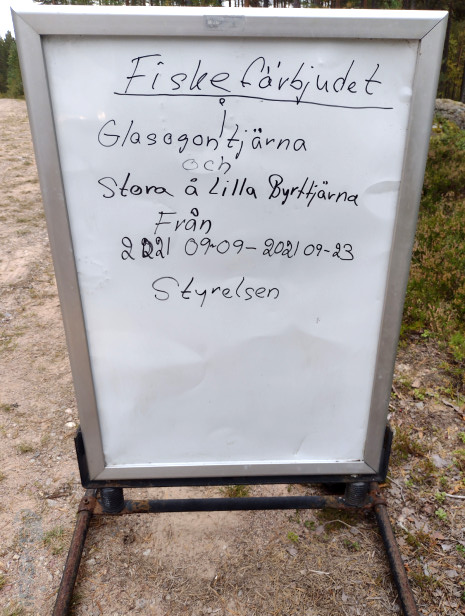 Fiske färbjudet
i
Glasogontjärna
och
Stora å Lilla Byrttjärna
Från
2021 09-09-2021 09-23
Styrelsen